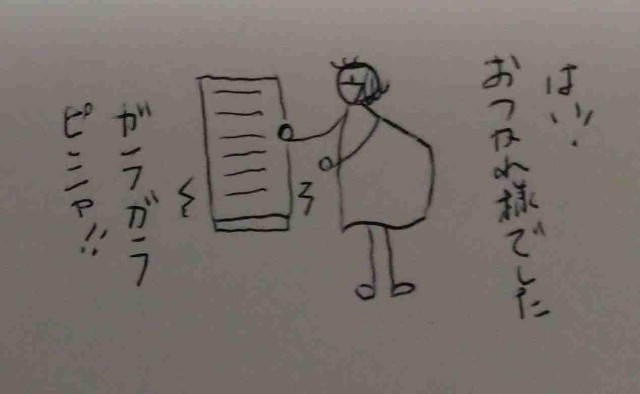 はい!
おつかれ様でした
ガラガラ
ピシャ!!